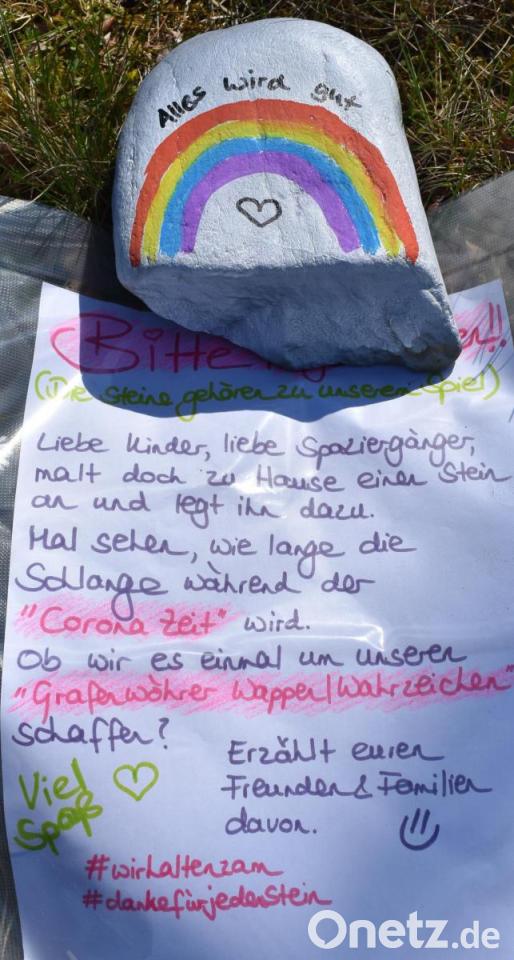 Alles wird gut
Bitte
(Die Steine gehören zu unserem Spiel)
Liebe Kinder, liebe Spaziergänger,
malt doch zu Hause einen Stein
an und legt ihn dazu.
Mal sehen, wie lange die
Schlange während der
"Corona Zeit" wird.
Ob wir es einmal um unseren
"Grafenwöhrer Wappen/Wahrzeichen"
schaffen?
Viel
Spaß
Erzählt euren
Freunden & Familien
davon.
#wirhaltenzam
#dankefürjedenStein
Onetz.de